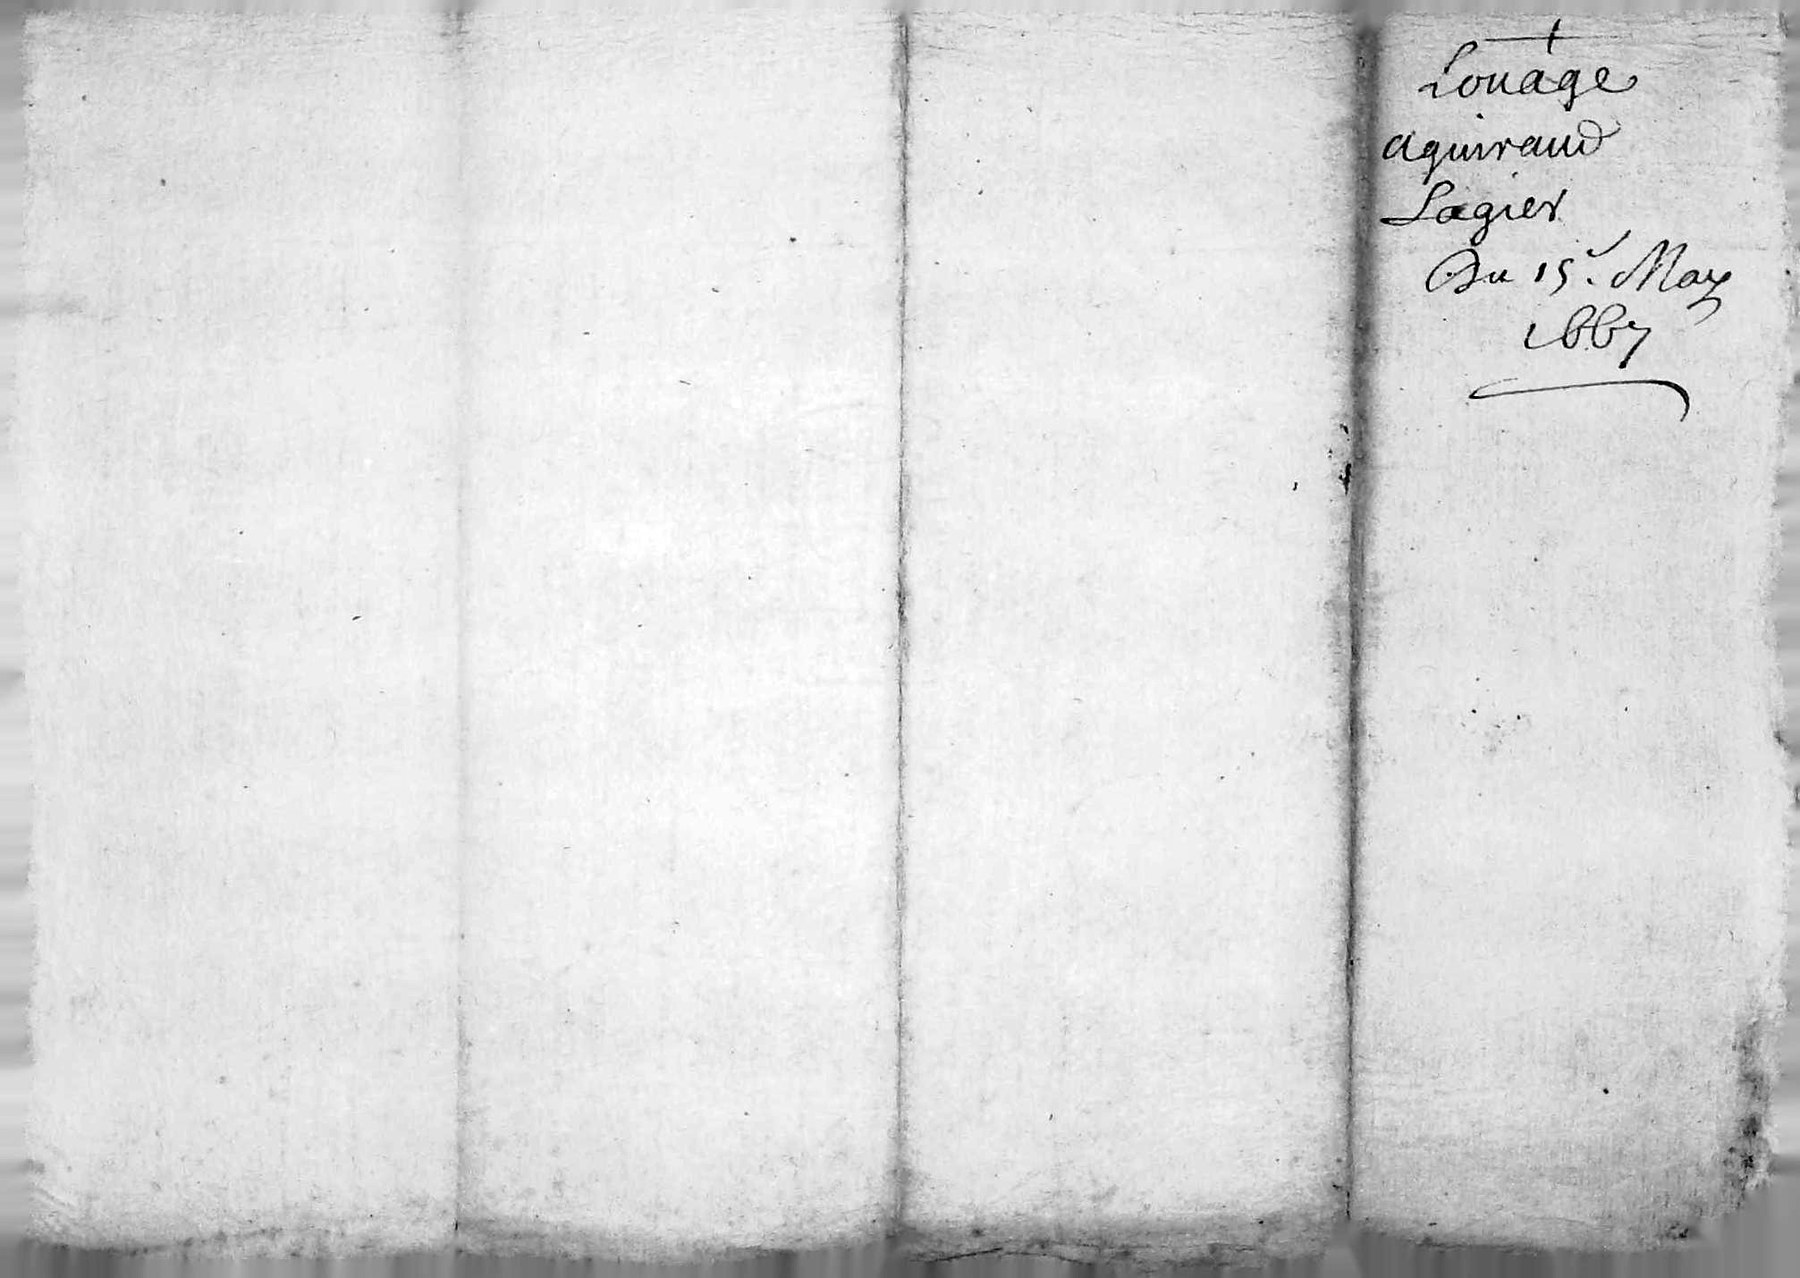 Louage
aguiraud
Lagier
Du 15.e May
1667